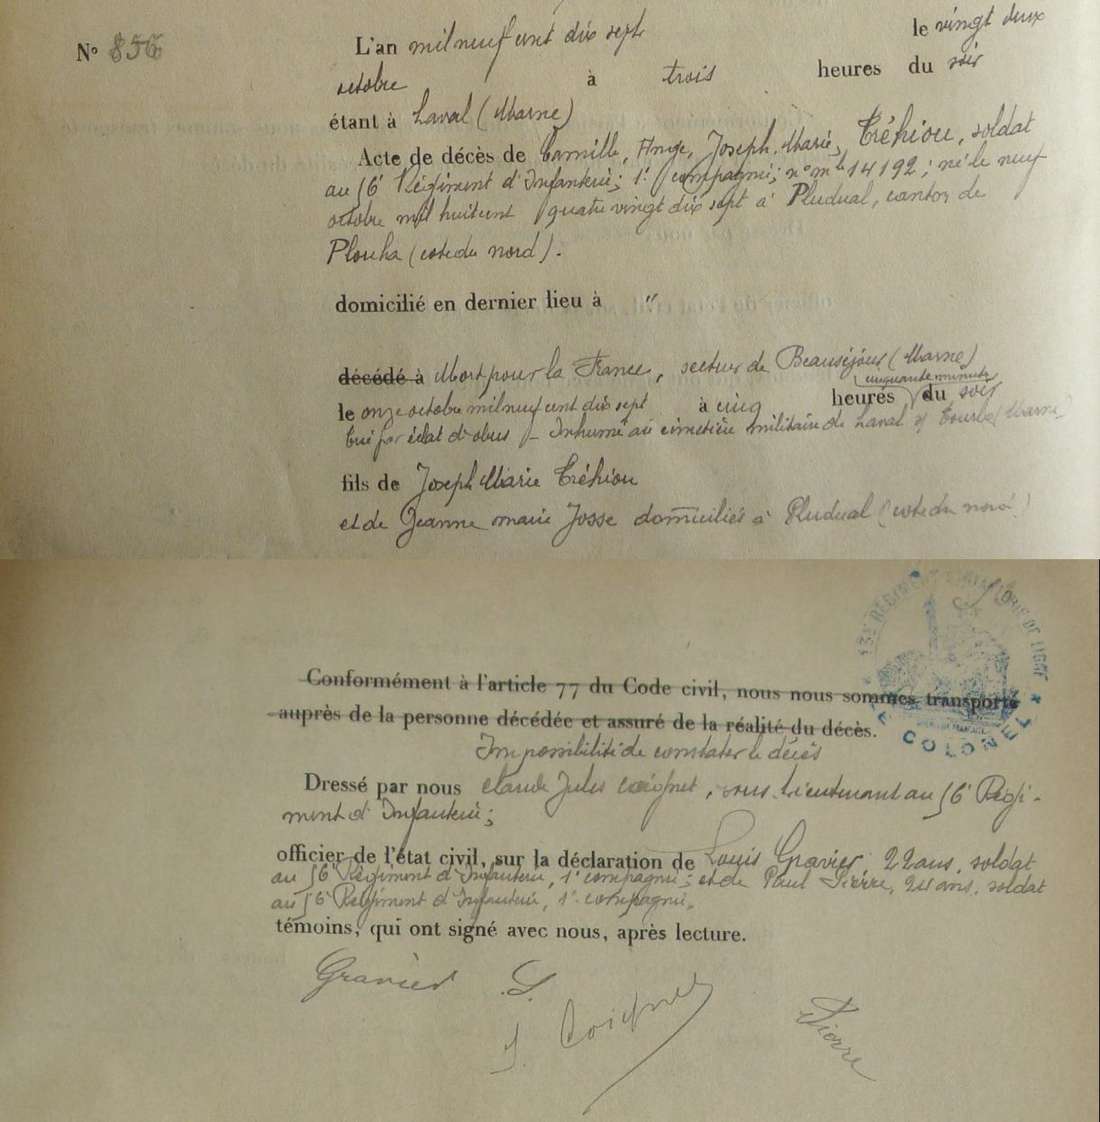 N° 856
L'an mil neuf cent dix sept le vingt deux
octobre à trois heures du soir
étant à Laval (Marne)
Acte de décès de Camille, Ange, Joseph, Marie, Tréhiou, soldat
au 56e Régiment d'Infanterie; 1e compagnie; n° mle 14192; né le neuf
octobre mil huit cent quatre vingt dix sept à Pludual, canton de
Plouha (cote du nord).
domicilié en dernier lieu à "
décédé à Mort pour la France, secteur de Beauséjour (Marne)
cinquante minutes
le onze octobre mil neuf cent dix sept à cinq heures du soir
tué par éclat d'obus - Inhumé au cimetière militaire de Laval s/ Tourbe (Marne)
fils de Joseph Marie Tréhiou
et de Jeanne marie Josse domiciliés à Pludual (cote du nord)
RÉGIMENT D'INFANTERIE DE LIGNE
LE COLONEL
Conformément à l'article 77 du Code civil, nous nous sommes transporté
auprès de la personne décédée et assuré de la réalité du décès.
Impossibilité de constater le décès
Dressé par nous Claude Jules Coignet, sous Lieutenant au 56e Régi-
ment d'Infanterie;
officier de l'état civil, sur la déclaration de Louis Gravier, 22 ans, soldat
au 56e Régiment d'Infanterie, 1e compagnie; et de Paul Pierre, 24 ans, soldat
au 56e Régiment d'Infanterie, 1e compagnie,
témoins, qui ont signé avec nous, après lecture.
Gravier L.
J Coignet
Pierre